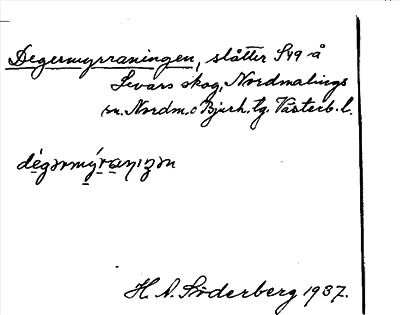 Degermyrraningen, slåtter S49 å
Levars skog, Nordmalings
sn. Nordm. o Bjurh. tg. Västerb. l.
dégərmýraniŋən
H. A. Söderberg 1937.